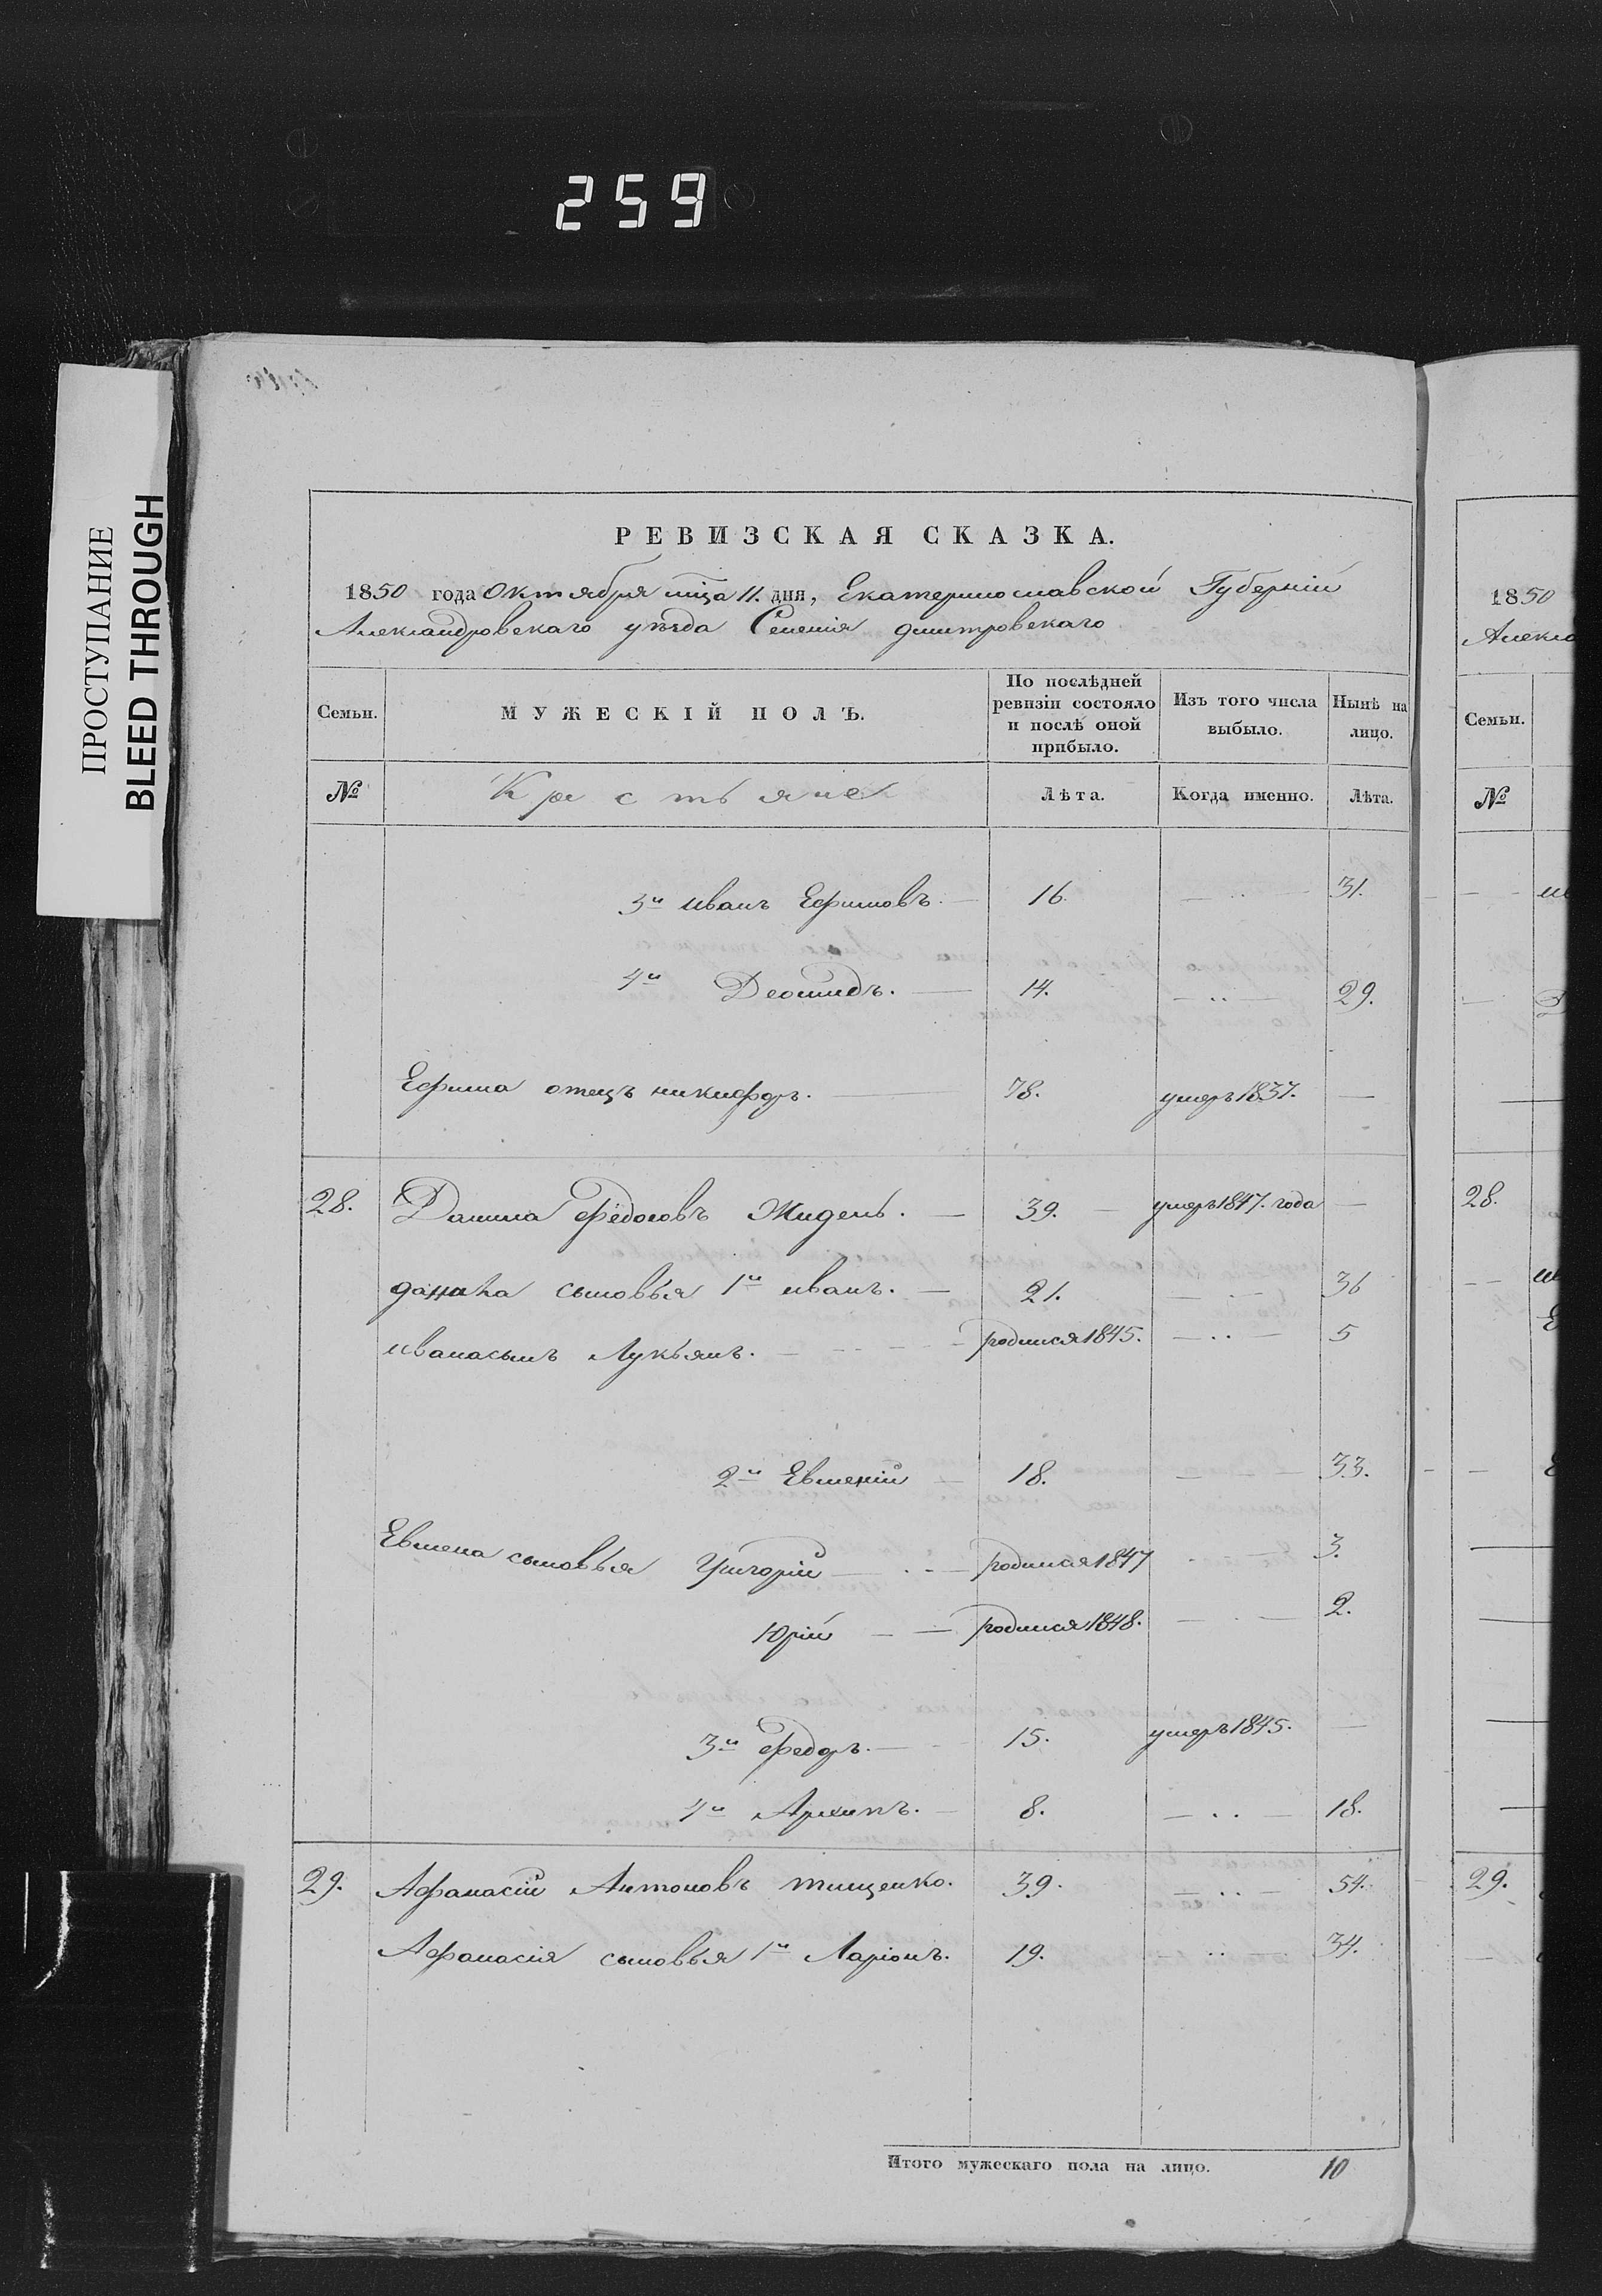 259
ПРОСТУПАНИЕ
BLEED THROUGH
РЕВИЗСКАЯ СКАЗКА.
1850 года Октября мца 11. дня, Екатеринославской Губерніи
Александровскаго уѣзда Селенія Дмитровскаго
Семьи. МУЖЕСКІЙ ПОЛЪ. По послѣдней ревизіи состояло и послѣ оной прибыло. Изъ того числа выбыло. Нынѣ на лицо.
№ Крестьяне Лѣта. Когда именно. Лѣта.
3й Иванъ Ефимовъ. 16. 31.
4й Деомидъ. 14. 29.
Ефима отецъ никифоръ. 78. умеръ 1837.
28. Данила Федоговъ Жидень. 39. умеръ 1847. года
сыновья 1й иванъ. 21. 36
иванасынъ Лукьянъ. родился 1845. 5
2й Евменій 18. 33.
Евмена сыновья Григорій родился 1847 3.
Юрій родился 1848. 2.
3й Федоръ. 15. умеръ 1845.
4й Архипъ. 8. 18.
29. Афанасій Антоновъ тищенко. 39. 54.
Афанасія сыновья 1й Ларіонъ. 19. 34.
Итого мужескаго пола на лицо. 10
1850
Алекса
Семьи.
№
28.
29.